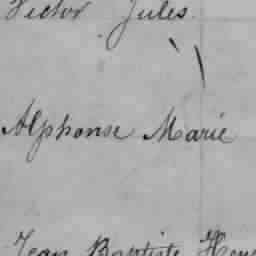 Victor Jules
Alphonse Marie
Jean Baptiste Henri